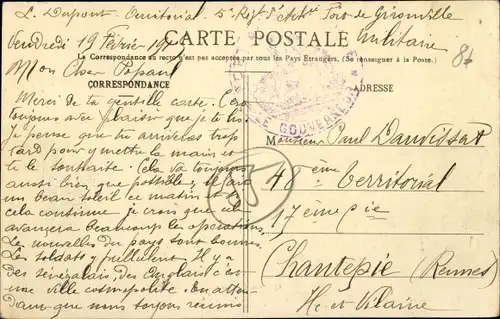 L. Dupont Territorial 5e Rég. d'Art. Fort de Gironville
Militaire
Vendredi 19 Février
CARTE POSTALE
La Correspondance au recto n'est pas acceptée par tous les Pays Étrangers. (Se renseigner à la Poste.)
Mon Cher Papaul
CORRESPONDANCE
ADRESSE
LE GOUVERNEUR
Merci de ta gentille carte. C'est
toujours avec plaisir que je te lis.
Je pense que tu arriveras trop
tard pour y mettre la main et
te le souhaite. Cela va toujours
aussi bien que possible, il fait
un beau soleil ce matin et si
cela continue je crois que cela
avancera beaucoup les opérations.
Les nouvelles du pays sont bonnes.
Les soldats y pullulent. Il y a
des sénégalais, des Anglais c'est
une ville cosmopolite. En atten-
dant que nous soyons réunis
Monsieur Paul Dauvissat
48ème Territorial
17ème Cie
Chantepie (Rennes)
Ille et Vilaine